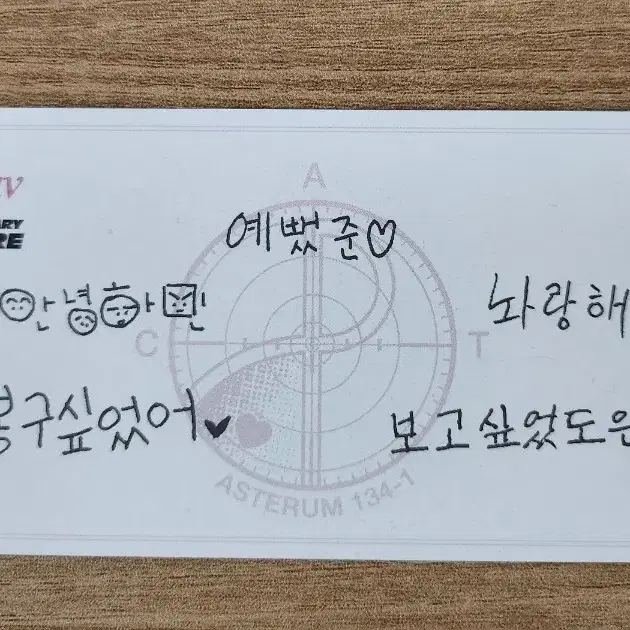 A
RY
RE
예뻤준♡
안녕하민
놔랑해
C
T
봉구싶었어♥
보고싶었도은
ASTERUM 134-1